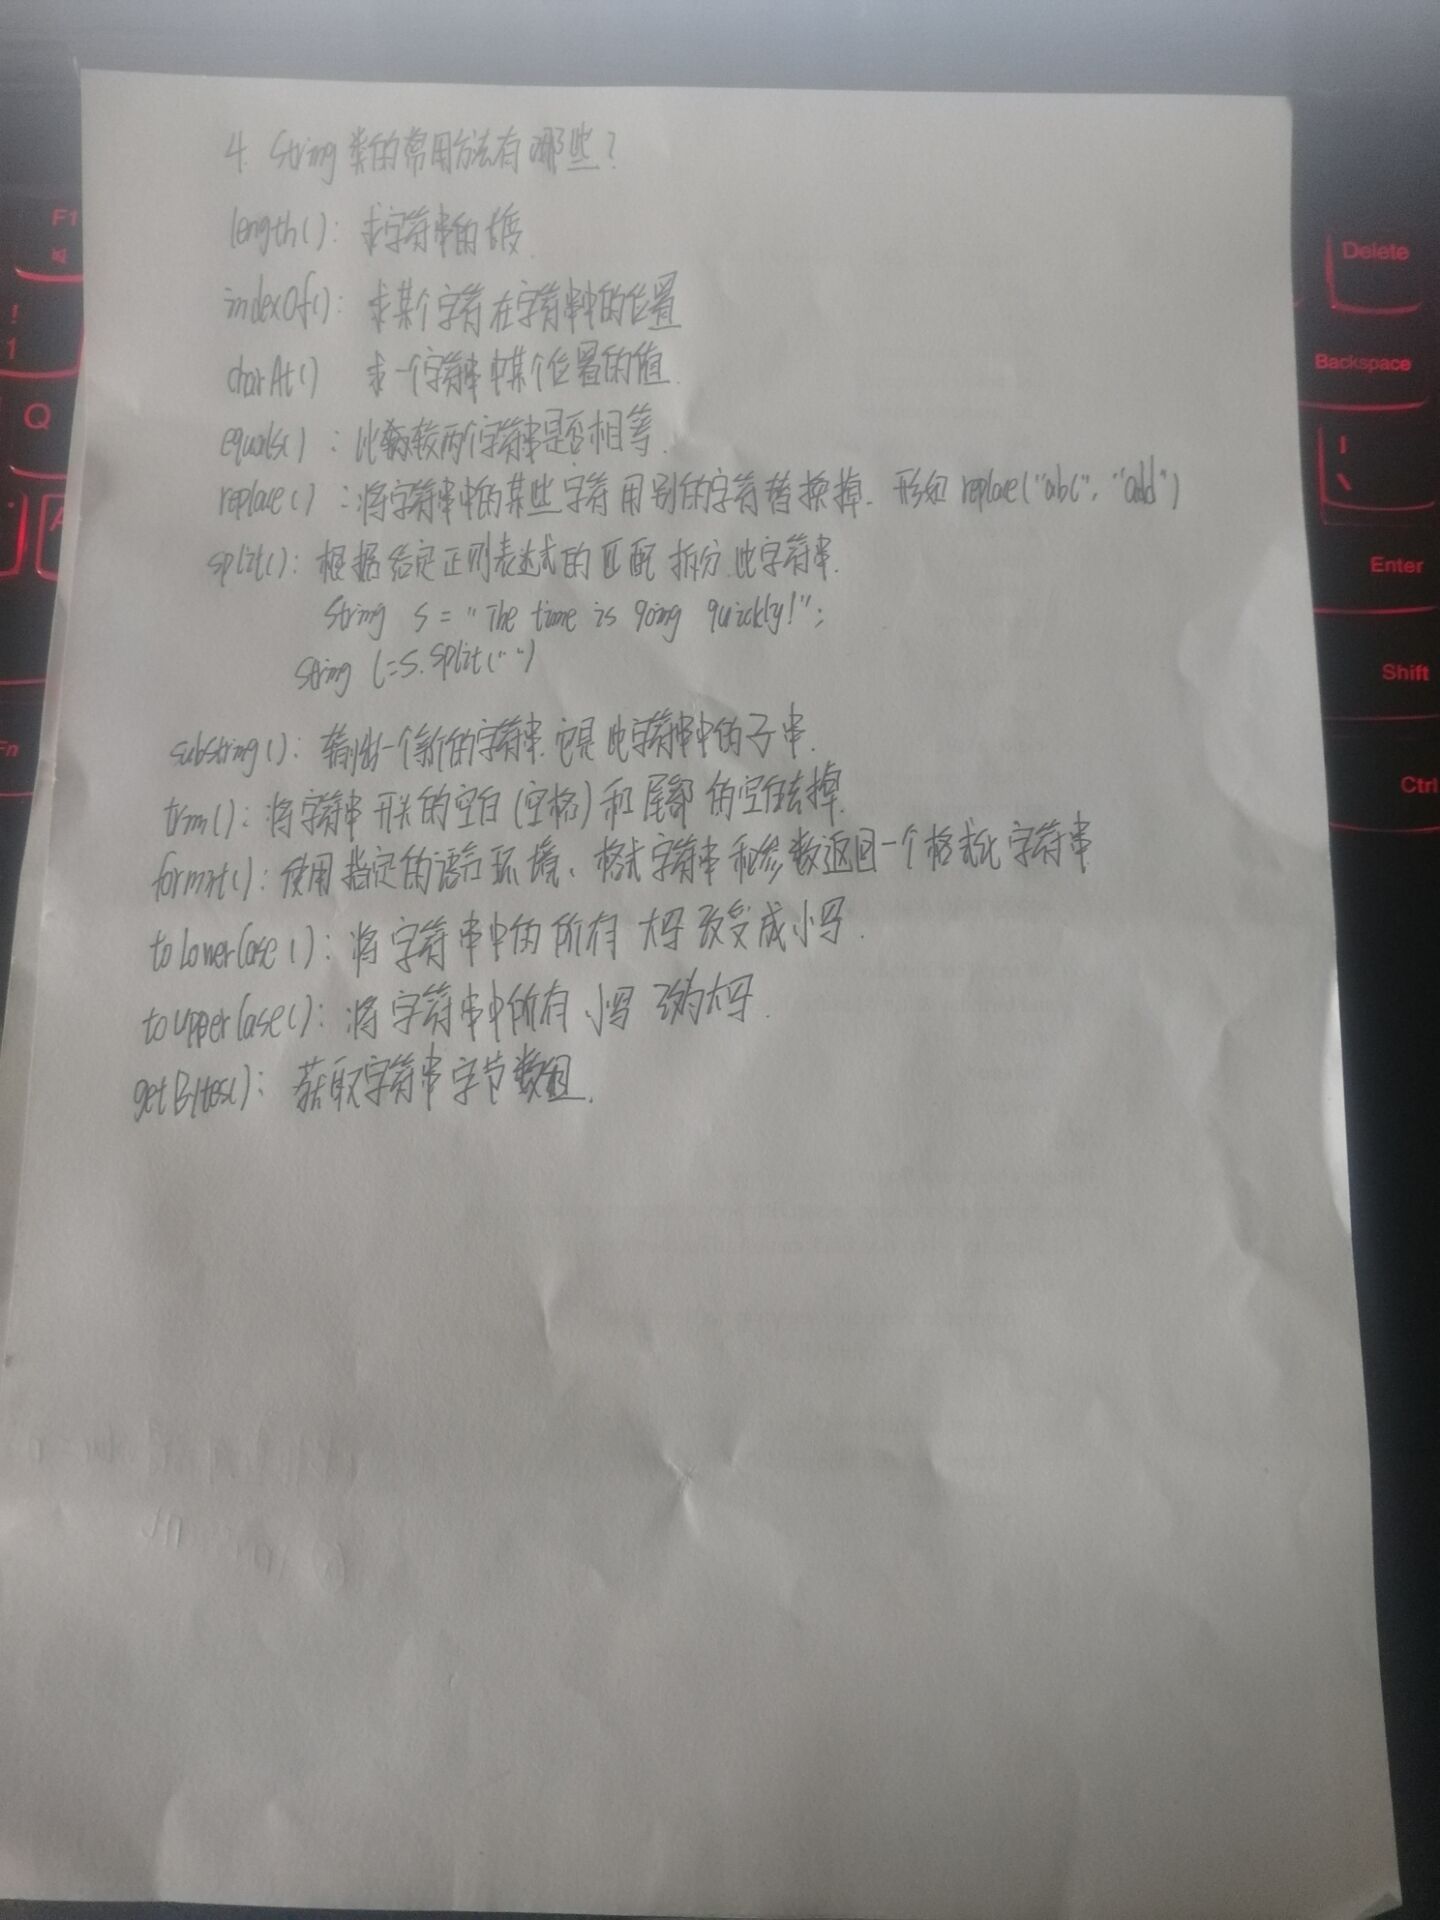 4. String 类的常用方法有哪些?
length(): 求字符串的长度.
indexOf(): 求某个字符在字符串中的位置
charAt() 求一个字符串中某个位置的值.
equals(): 比较两个字符串是否相等.
replace(): 将字符串中的某些字符用别的字符替换掉. 形如 replace("abc", "add")
split(): 根据给定正则表达式的匹配拆分此字符串.
String s = "The time is going quickly!";
String l=s.split(" ")
substring(): 输出一个新的字符串.它是此字符串中的子串.
trim(): 将字符串开头的空白(空格)和尾部的空白去掉.
format(): 使用指定的语言环境、格式字符串和参数返回一个格式化字符串
toLowerCase(): 将字符串中的所有大写改变成小写.
toUpperCase(): 将字符串中所有小写改为大写.
getBytes(): 获取字符串字节数组.
F1
!
1
Q
A
Fn
Delete
Backspace
|
\
Enter
Shift
Ctrl